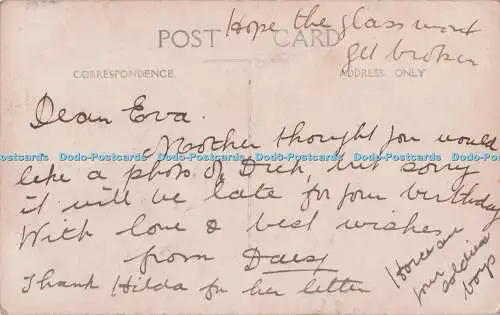 Hope the glass wont
get broken
POST CARD
CORRESPONDENCE
ADDRESS ONLY
Dean Eva.
Mother thought you would
Dodo-Postcards Dodo-Postcards Dodo-Postcards Dodo-Postcards Dodo-Postcards
like a photo of Dick, but sorry
it will be late for your birthday
With love & best wishes
from Daisy
Thank Hilda for her letter
How are
your
soldier
boys